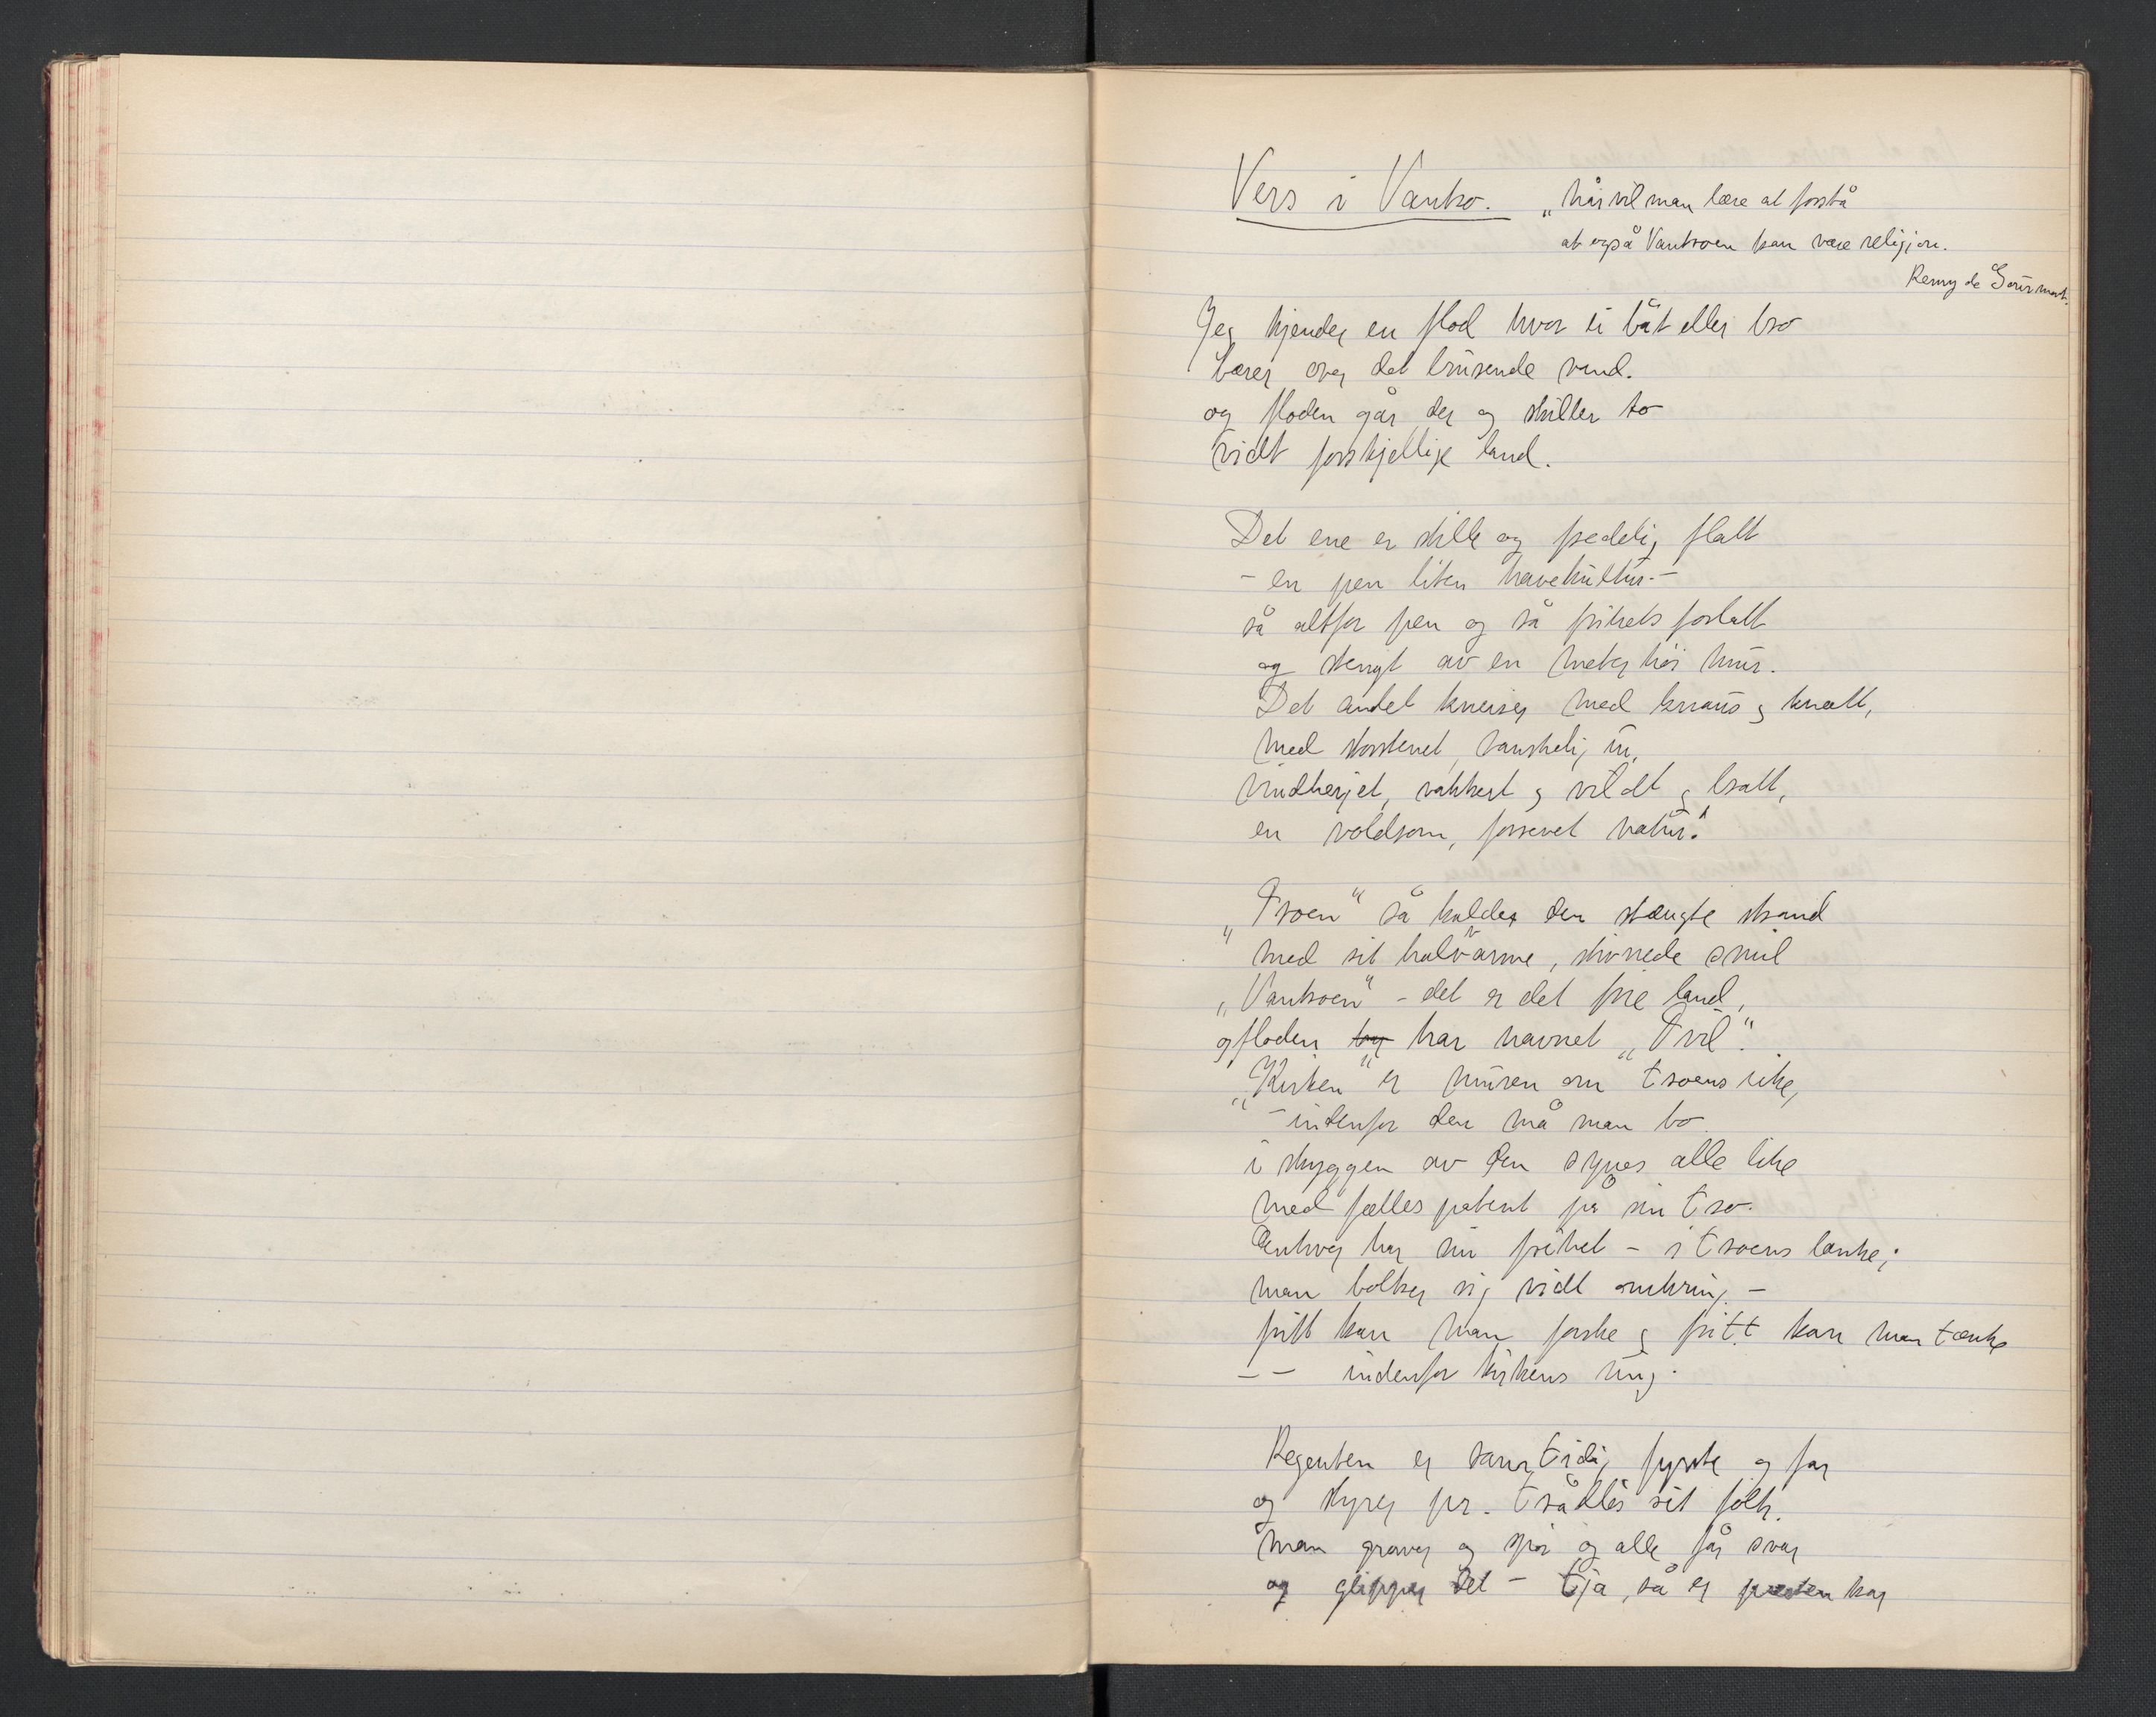 Vers i Vantro.
„Når vil man lære at forstå
at også Vantroen kan være religion.
Remy de Gourmont.
Jeg kjender en flod hvor ei båt eller bro
bærer over det brusende vand.
og floden går der og skiller to
vidt forskjellige land.
Det ene er stille og fredelig flatt
– en pen liten havekultur –
så altfor pen og så frihetsforlatt
og stengt av en meterhøi mur.
Det andet kneiser med knaus og knatt,
med storstenet, vanskelig ur,
vindherjet, vakkert og vildt og bratt,
en voldsom, forrevet natur.
„Troen" så kaldes den stængte strand
med sit halvarme, stivnede smil
„Vantroen" – det er det frie land,
og floden har navnet „Tvil".
„Kirken" er muren om troens rike,
– indenfor den må man bo.
i skyggen av den synes alle like
med fælles patent på sin tro.
Enhver har sin frihet – i troens lænke;
man boltrer sig vidt omkring –
fritt kan man forske og fritt kan man tænke
– – indenfor kirkens ring.
Regenten er samtidig fyrste og far
og styrer pr. trådløs sit folk.
man graver og spør og alle får svar
og glipper det – tja, så er presten kar